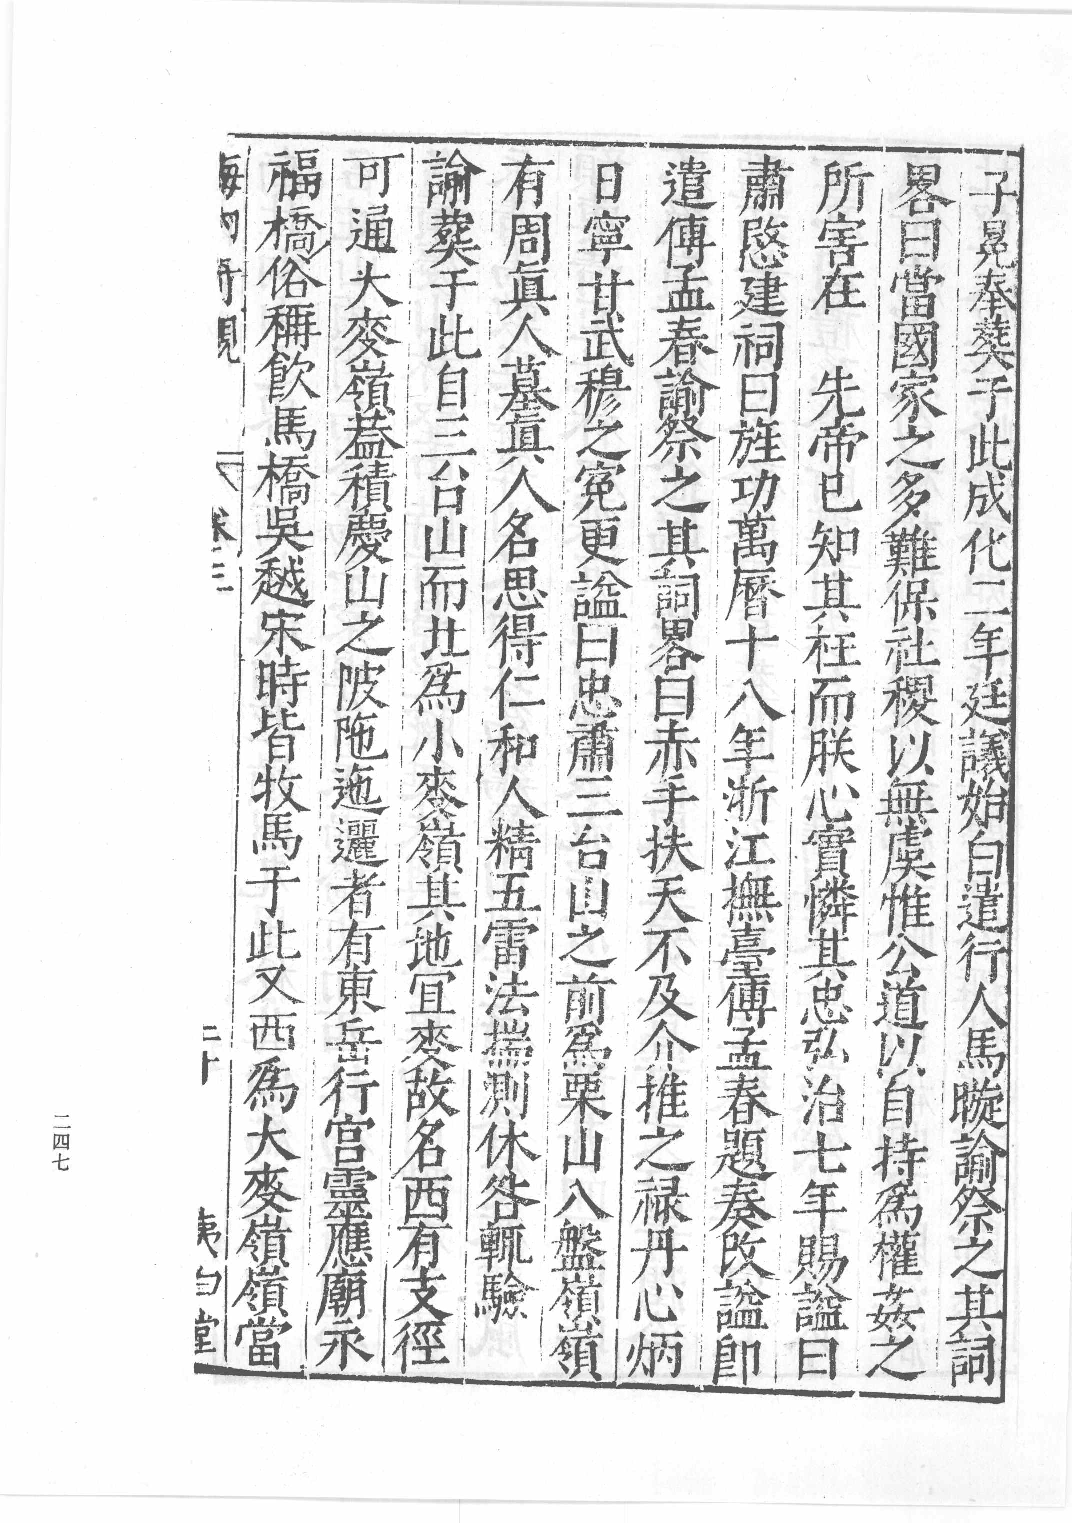 子冕奉葬于此成化二年廷議始白遣行人馬暶諭祭之其詞
畧曰當國家之多難保社稷以無虞惟公道以自持為權姦之
所害在　先帝已知其枉而朕心實憐其忠弘治七年賜謚曰
肅愍建祠曰旌功萬曆十八年浙江撫臺傅孟春題奏改謚即
遣傅孟春諭祭之其詞畧曰赤手扶天不及介推之祿丹心炳
日寧甘武穆之冤更謚曰忠肅三台山之前爲栗山八盤嶺嶺
有周眞人墓眞人名思得仁和人精五雷法揣測休咎輒驗
諭葬于此自三台山而北爲小麥嶺其地宜麥故名西有支徑
可通大麥嶺葢積慶山之陂陁迤邐者有東岳行宮靈應廟永
福橋俗稱飲馬橋吳越宋時皆牧馬于此又西爲大麥嶺嶺當
海內奇觀　卷三　二十　夷白堂
二四七